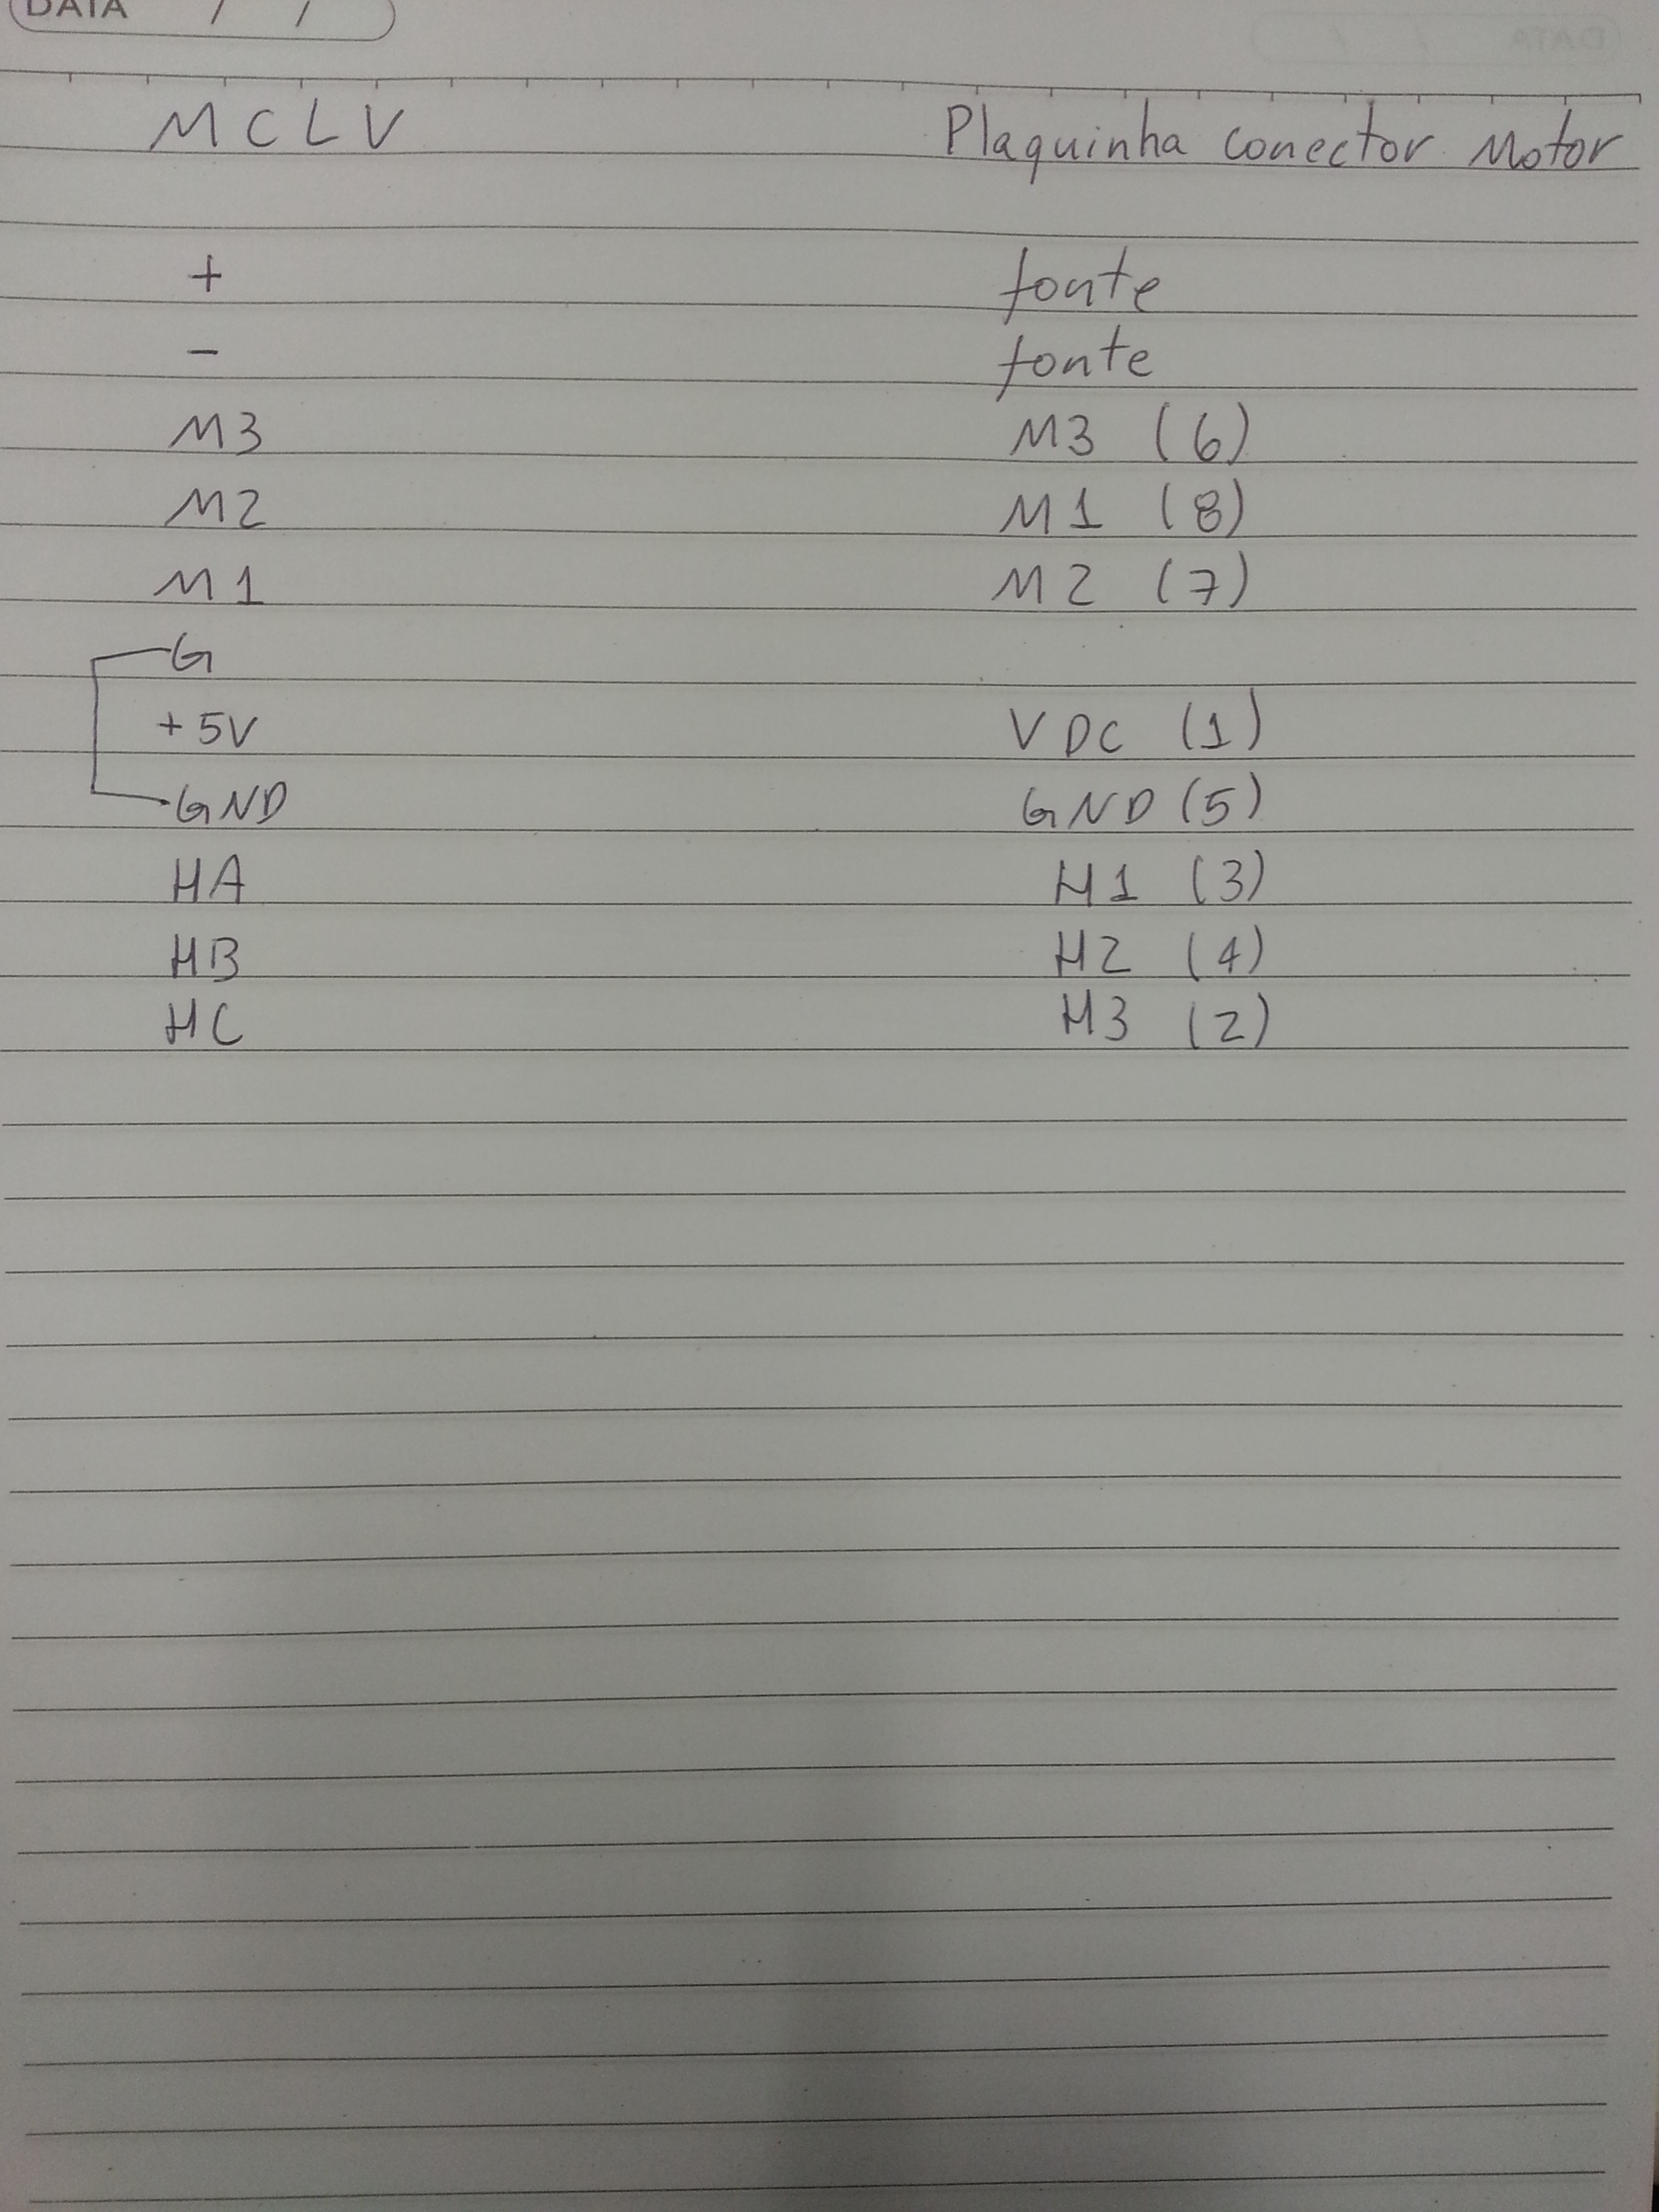 DATA / /
MCLV Plaquinha conector Motor
+ fonte
- fonte
M3 M3 (6)
M2 M1 (8)
M1 M2 (7)
G
+5V VDC (1)
GND GND (5)
HA H1 (3)
HB H2 (4)
HC H3 (2)